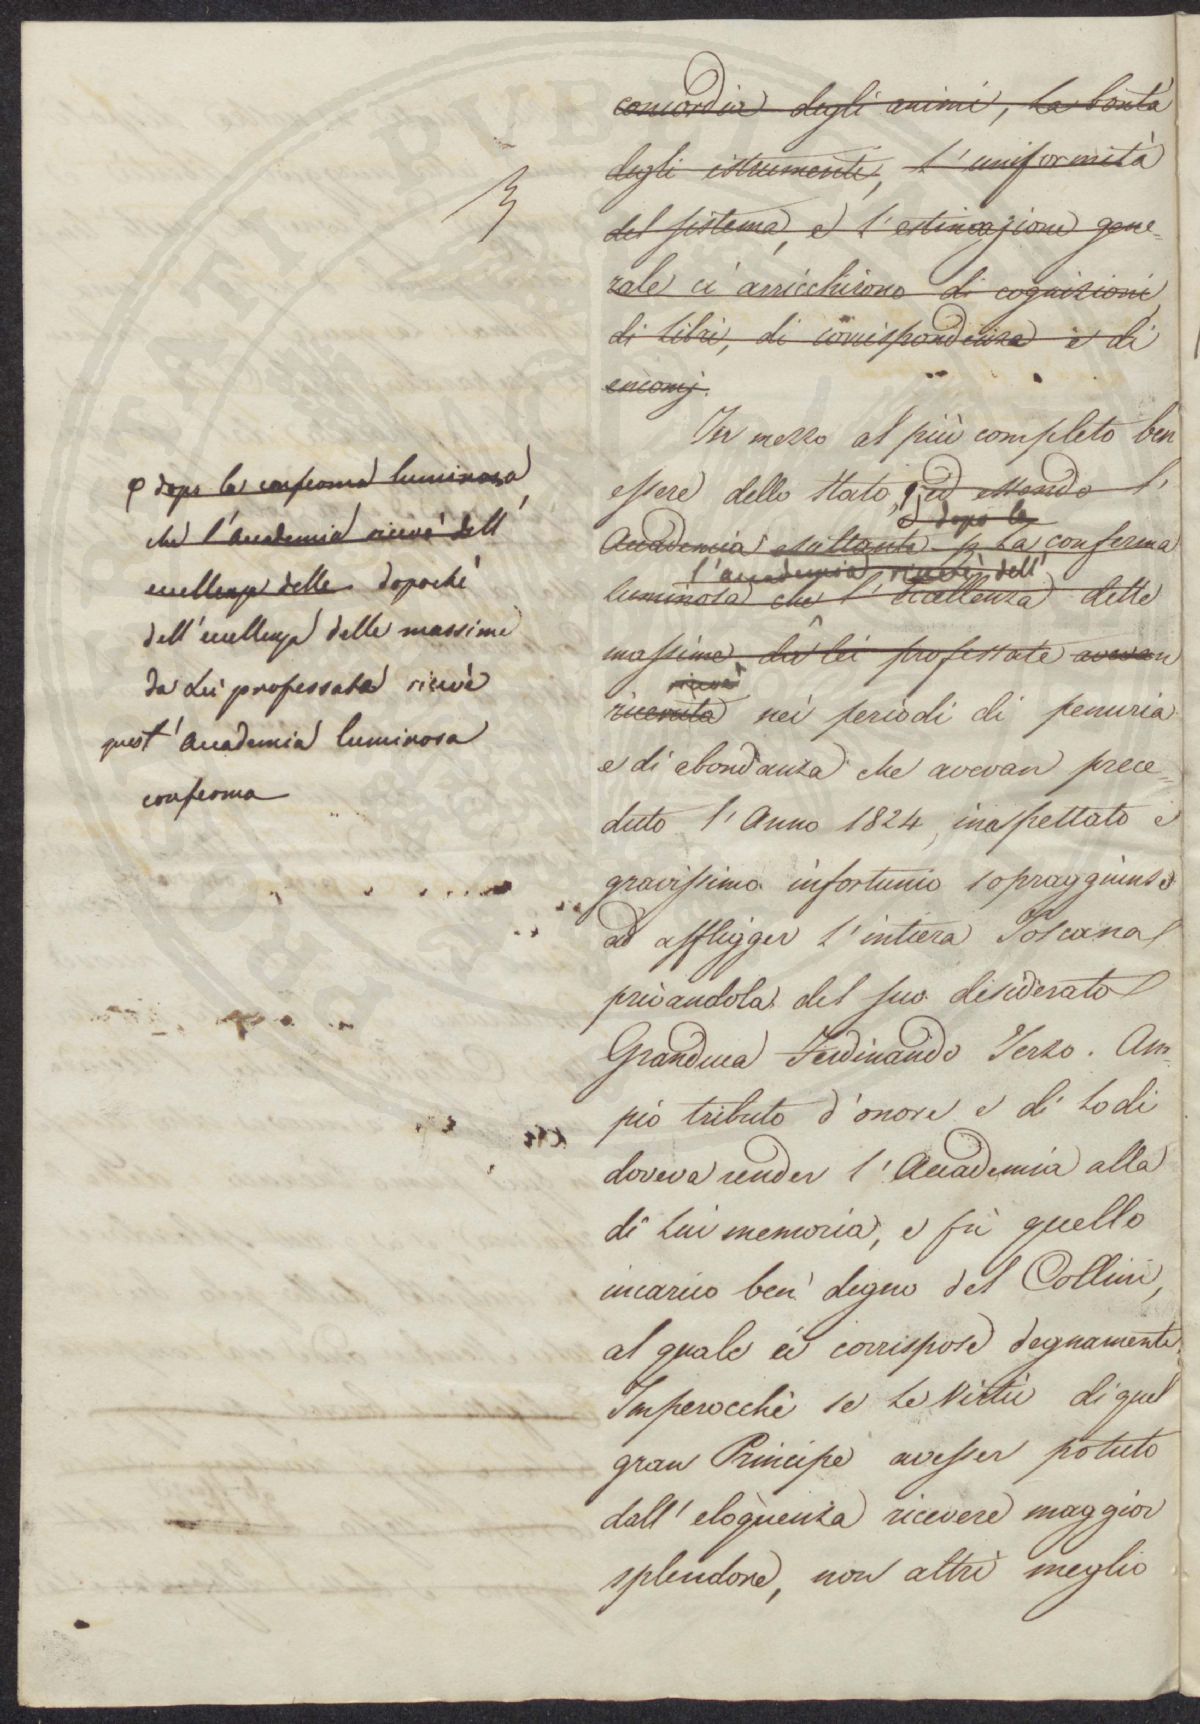 concordia degli animi, la bontà
degli istrumenti, l'uniformità
del sistema, e l'estimazione gene=
rale ci arricchirono di cognizioni
di libri, di corrispondenze e di
encomj.
In mezzo al più completo ben
essere dello Stato, ed essendo l'
e dopo la
Accademia esultante p la conferma
l'accademia ricevè dell'
luminosa che l'eccellenza delle
massime da lei professate avevan
ricevè
ricevuta nei periodi di penuria
e di abondanza che avevan prece=
duto l'Anno 1824, inaspettato e
gravissimo infortunio sopraggiunse
ad affligger l'intiera Toscana
privandola del suo desiderato
Granduca Ferdinando Terzo. Am=
pio tributo d'onore e di lodi
doveva render l'Accademia alla
di lui memoria, e fù quello
incarico ben degno del Collini,
al quale ei corrispose degnamente.
Imperocchè se le Virtù di quel
gran Principe avesser potuto
dall'eloquenza ricevere maggior
splendore, non altri meglio
dopo la conferma luminosa
che l'Accademia ricevè dell'
eccellenza delle dopochè
dell'eccellenza delle massime
da Lei professate ricevè
quest'Accademia luminosa
conferma